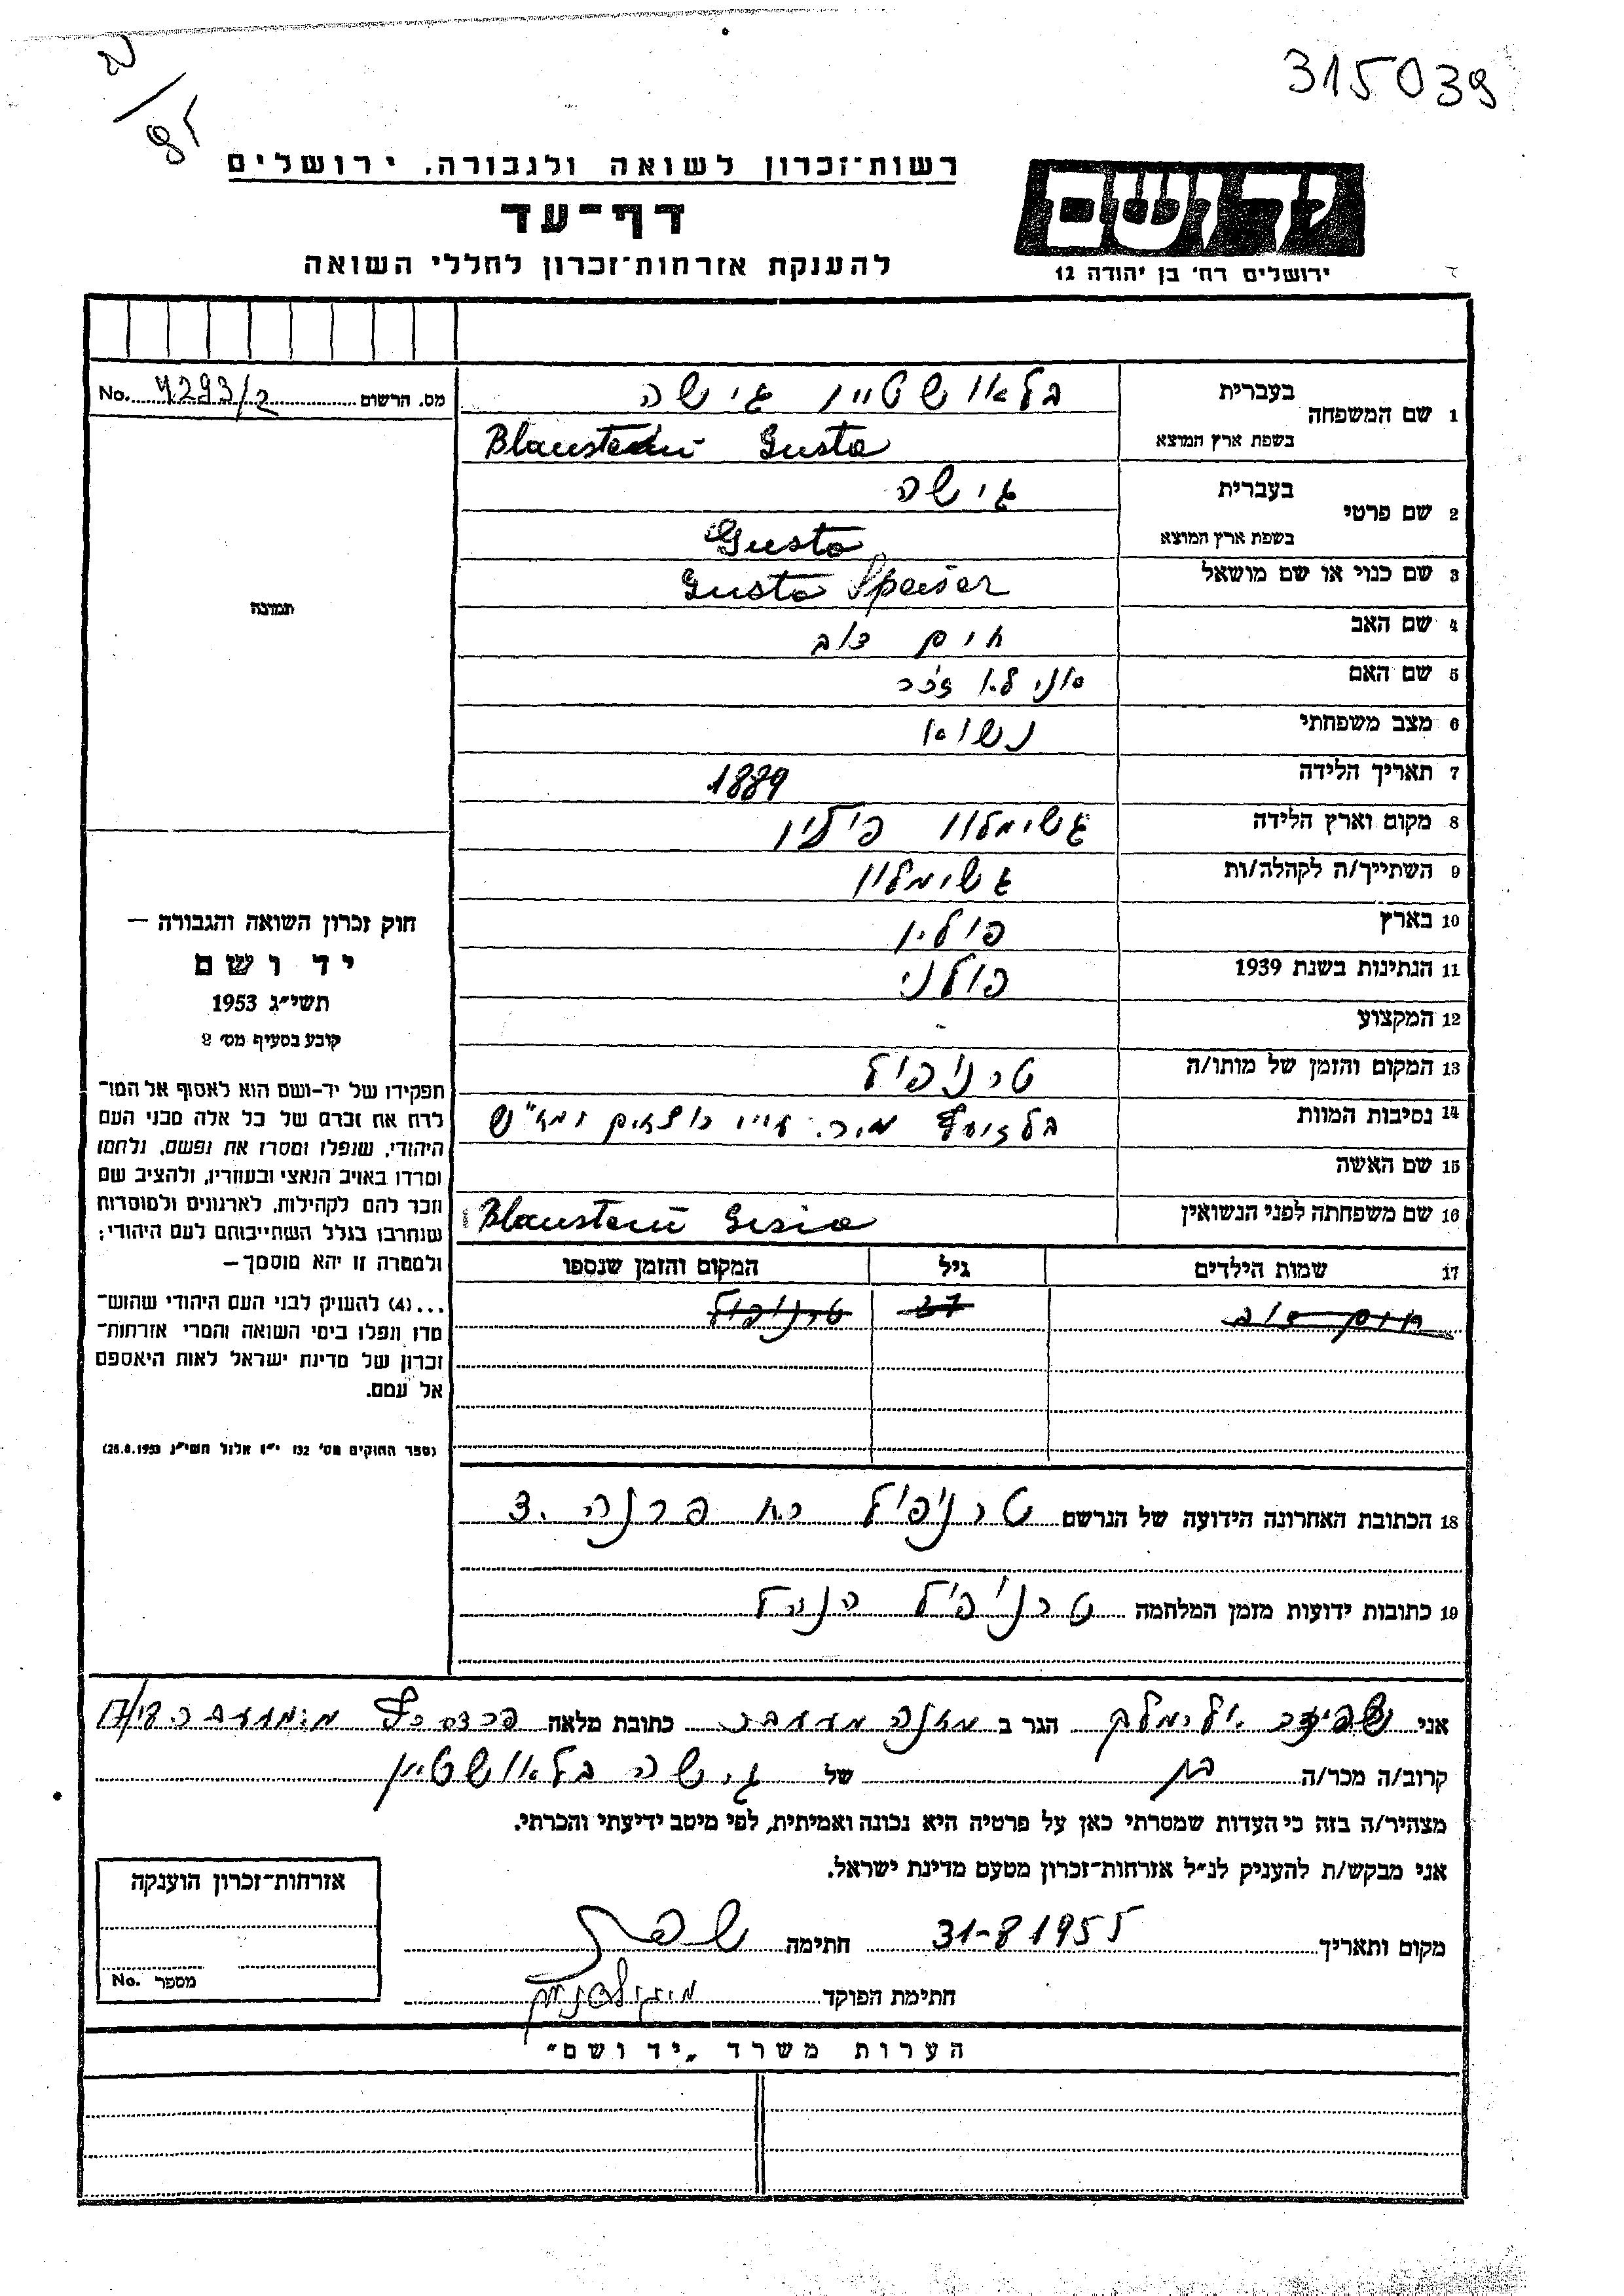 315039
רשות־זכרון לשואה ולגבורה, ירושלים
דף־עד
להענקת אזרחות־זכרון לחללי השואה
יד ושם
ירושלים רח' בן יהודה 12
מס. הרשום 4293/2 No.
תמונה
חוק זכרון השואה והגבורה —
יד ושם
תשי״ג 1953
קובע בסעיף מס׳ 2
תפקידו של יד-ושם הוא לאסוף אל המו־
לדת את זכרם של כל אלה מבני העם
היהודי, שנפלו ומסרו את נפשם, נלחמו
ומרדו באויב הנאצי ובעוזריו, ולהציב שם
וזכר להם לקהילות, לארגונים ולמוסדות
שנחרבו בגלל השתייכותם לעם היהודי;
ולמטרה זו יהא מוסמך —
...(4) להעניק לבני העם היהודי שהוש־
מדו ונפלו בימי השואה והמרי אזרחות־
זכרון של מדינת ישראל לאות היאספם
אל עמם.
(ספר החוקים מס' 132 י״ז אלול תשי״ג 28.8.1953)
1 שם המשפחה בעברית בלאושטיין גישה
בשפת ארץ המוצא Blaustein Gusta
2 שם פרטי בעברית גישה
בשפת ארץ המוצא Gusta
3 שם כנוי או שם מושאל Gusta Speiser
4 שם האב חיים
5 שם האם
6 מצב משפחתי נשוא
7 תאריך הלידה 1889
8 מקום וארץ הלידה גשימלוו פולין
9 השתייך/ה לקהלה/ות גשימלוו
10 בארץ פולין
11 הנתינות בשנת 1939 פולני
12 המקצוע
13 המקום והזמן של מותו/ה טרנופול
14 נסיבות המוות
15 שם האשה
16 שם משפחתה לפני הנשואין Blaustein
17 שמות הילדים גיל המקום והזמן שנספו
טרנופול
18 הכתובת האחרונה הידועה של הנרשם טרנופול רח
19 כתובות ידועות מזמן המלחמה טרנופול הנ״ל
אני שפיזר אלימלך הגר ב כתובת מלאה
קרוב/ה מכר/ה בן של גישה בלאושטיין
מצהיר/ה בזה כי העדות שמסרתי כאן על פרטיה היא נכונה ואמיתית, לפי מיטב ידיעתי והכרתי.
אני מבקש/ת להעניק לנ״ל אזרחות־זכרון מטעם מדינת ישראל.
מקום ותאריך 31-8 1955 חתימה
חתימת הפוקד
אזרחות־זכרון הוענקה
מספר No.
הערות משרד „יד ושם״